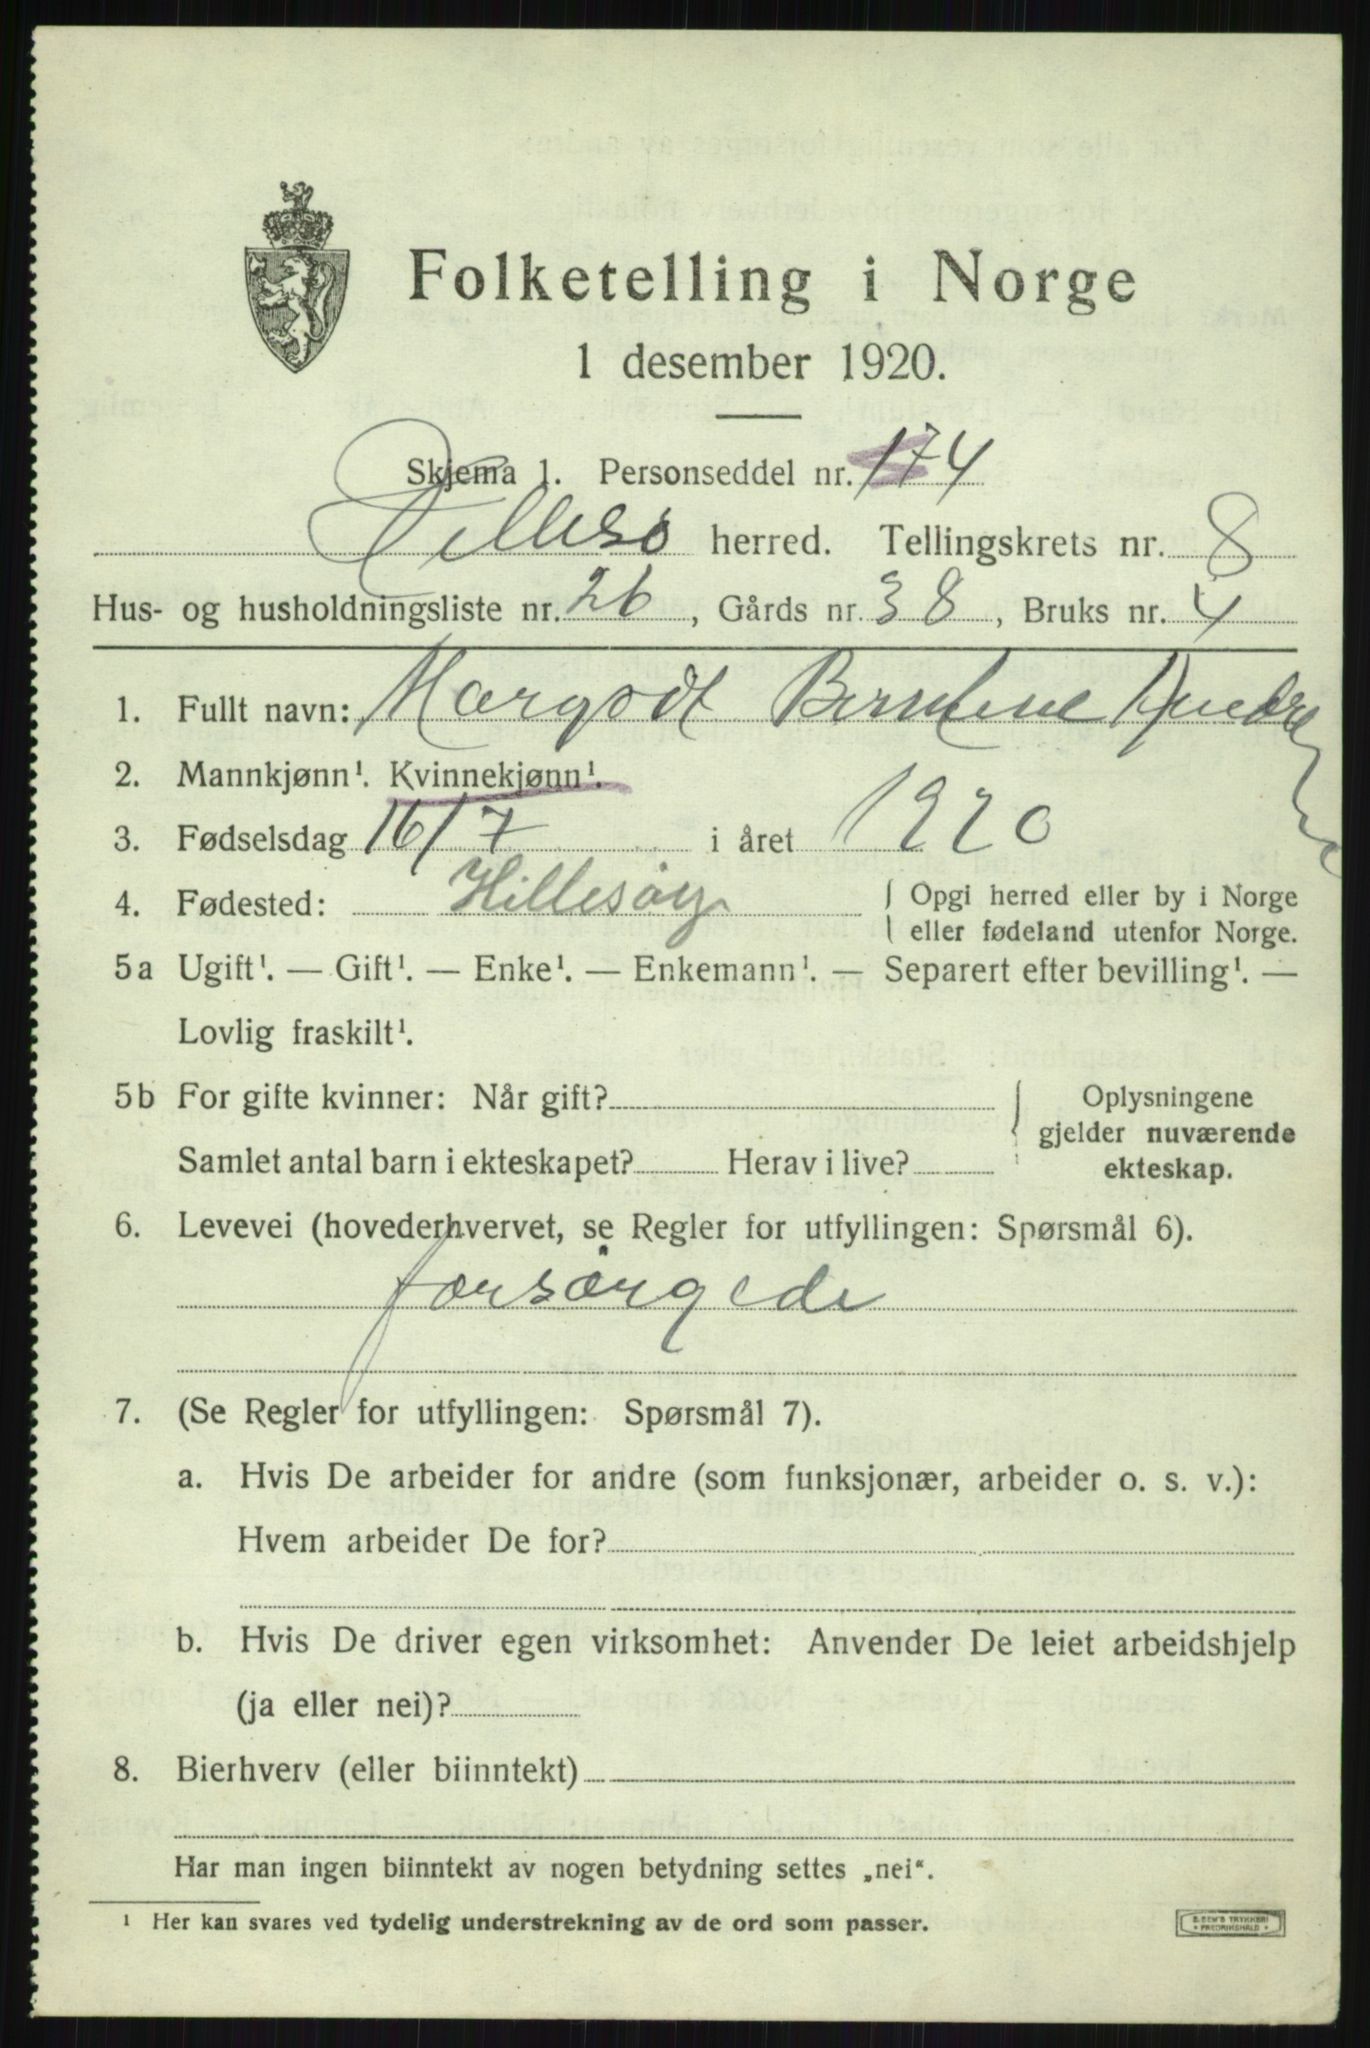 Folketelling i Norge
1 desember 1920.
Skjema 1. Personseddel nr. 174
Hillesö herred. Tellingskrets nr. 8
Hus- og husholdningsliste nr. 26, Gårds nr. 38, Bruks nr. 4
1. Fullt navn: Margodt
2. Mannkjønn¹. Kvinnekjønn¹.
3. Fødselsdag 16/7 i året 1920
4. Fødested: Hillesöy { Opgi herred eller by i Norge
eller fødeland utenfor Norge.
5a Ugift¹. — Gift¹. — Enke¹. — Enkemann¹. — Separert efter bevilling¹. —
Lovlig fraskilt¹.
5b For gifte kvinner: Når gift? { Oplysningene
gjelder nuværende
Samlet antal barn i ekteskapet? Herav i live? ekteskap.
6. Levevei (hovederhvervet, se Regler for utfyllingen: Spørsmål 6).
forsörgede
7. (Se Regler for utfyllingen: Spørsmål 7).
a. Hvis De arbeider for andre (som funksjonær, arbeider o. s. v.):
Hvem arbeider De for?
b. Hvis De driver egen virksomhet: Anvender De leiet arbeidshjelp
(ja eller nei)?
8. Bierhverv (eller biinntekt)
Har man ingen biinntekt av nogen betydning settes „nei“.
¹ Her kan svares ved tydelig understrekning av de ord som passer.